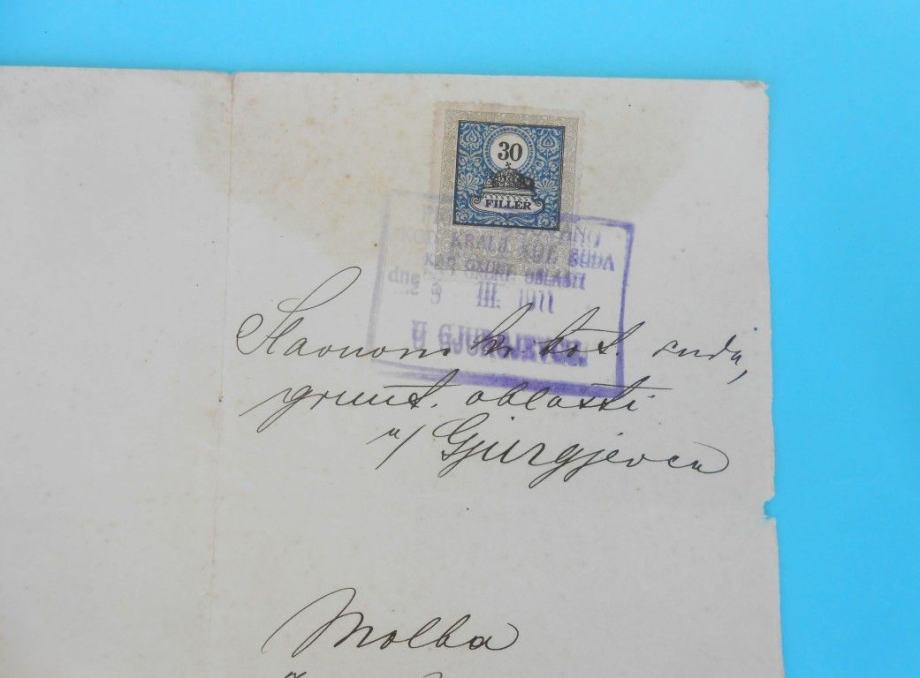 30
FILLER
KOD KRALJ. KOT. SUDA
KAO GRUNT. OBLASTI
dne 9 III. 1911
U GJURGJEVCU.
Slavnom kr. kot. sudu,
grunt. oblasti
u/ Gjurgjevcu
Molba